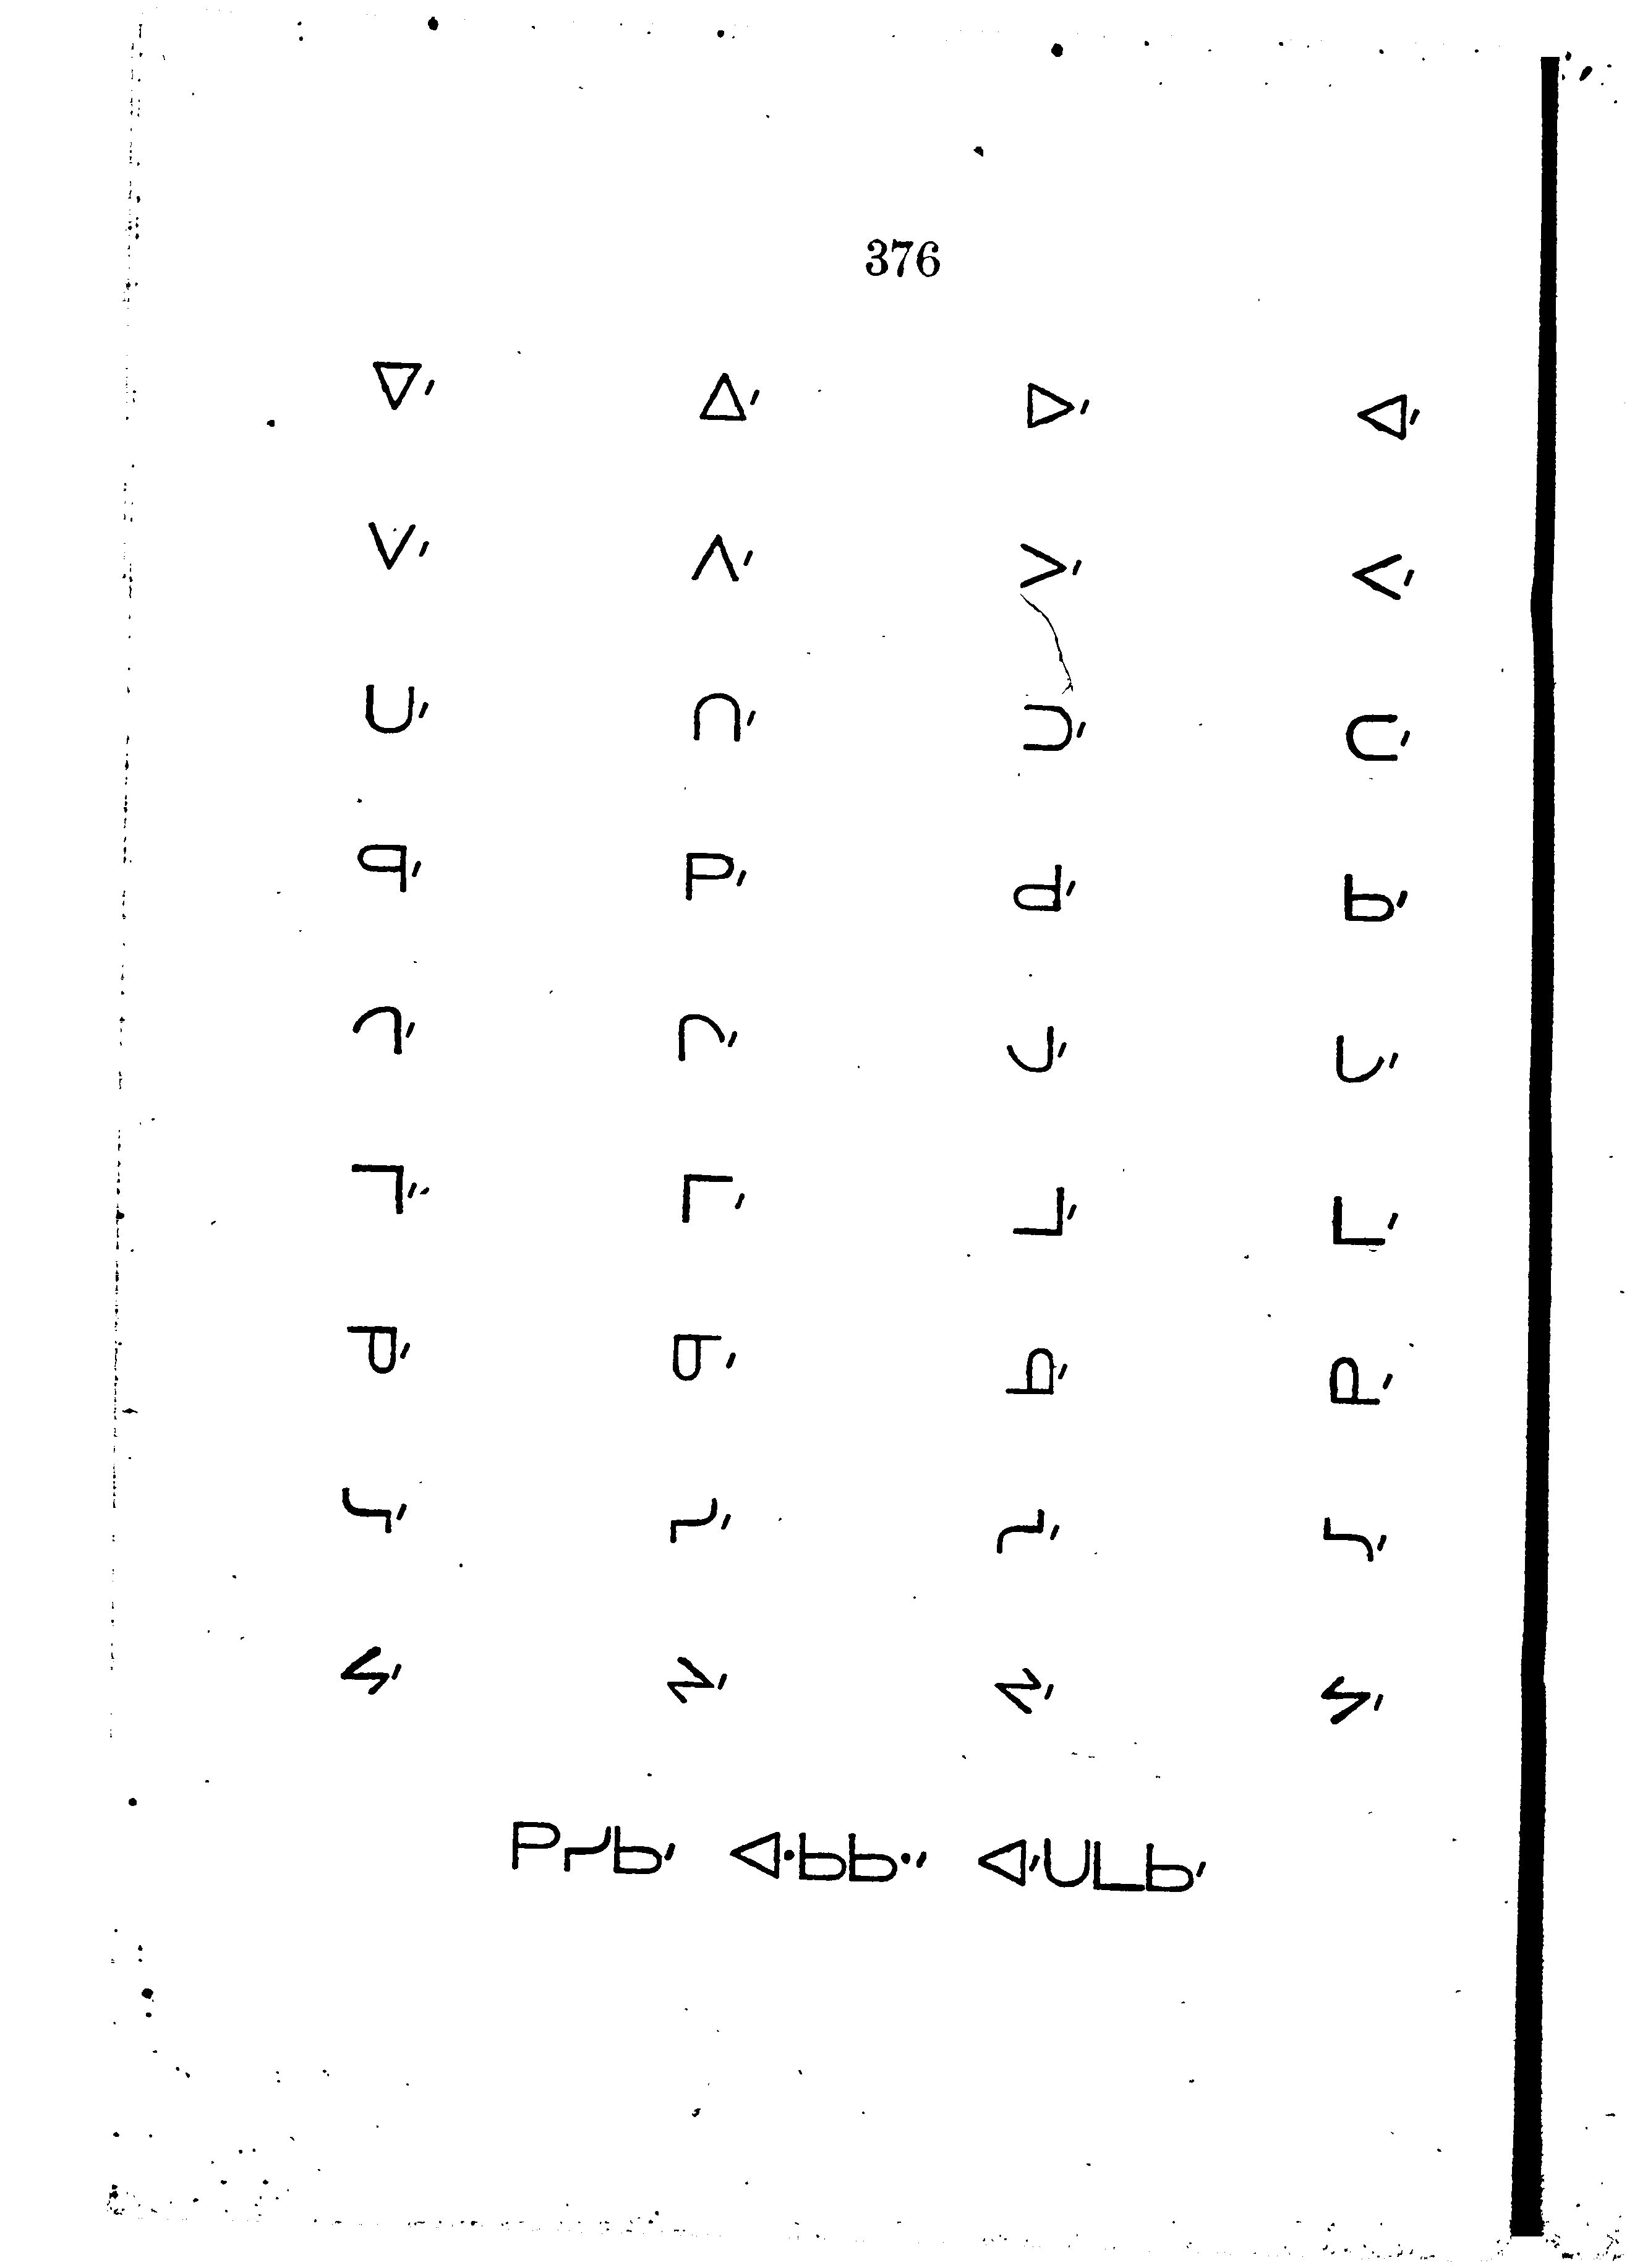 376
ᐁᐟ ᐃᐟ ᐅᐟ ᐊᐟ
ᐯᐟ ᐱᐟ ᐳᐟ ᐸᐟ
ᑌᐟ ᑎᐟ ᑐᐟ ᑕᐟ
ᑫᐟ ᑭᐟ ᑯᐟ ᑲᐟ
ᒉᐟ ᒋᐟ ᒍᐟ ᒐᐟ
ᒣᐟ ᒥᐟ ᒧᐟ ᒪᐟ
ᓀᐟ ᓂᐟ ᓄᐟ ᓇᐟ
ᓭᐟ ᓯᐟ ᓱᐟ ᓴᐟ
ᔦᐟ ᔨᐟ ᔪᐟ ᔭᐟ
ᑭᓯᑲᐟ ᐊᐧᑲᑲᐧᐟ ᐊᐟᑌᒪᑲᐟ